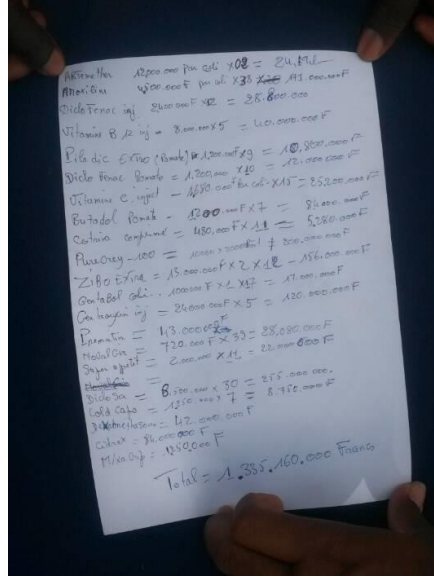 Artemether 12000.000 par coli x 02 = 24,
Amoxiline 4500.000F par coli x 38 = 171.000.000F
Diclofenac inj 2400.000F x 12 = 28.800.000
Vitamine B 12 inj = 8.000.000 x 5 = 40.000.000F
1.200.000F x 9 = 10,800.000F
Diclo Fenac Pomate = 1.200.000 x 10 = 12.000.000F
Vitamine C inject - 1680.000F par coli x 15 = 25.200.000F
Butadol Pomate - 1200.000F x 7 = 84000.000F
comprimé = 480,000F x 11 = 5.280.000F
- 100 = = 200.000.000F
ZIBO EXTRA = 13.000.000F x 2 x 12 - 156.000.000F
coli 1000.000F x 1 x 17 = 17.000.000F
inj = 24000.000F x 5 = 120.000.000F
= 113.000.000F
= 720.000F x 39 = 28,080.000F
Super apetit = 2.000.000 x 11 = 22.000.000F
= 8.500.000 x 30 = 255.000.000.
Cold Caps = 1250.000 x 7 = 8.750.000F
= 42.000.000F
= 84.000000F
= 1250,000F
Total = 1.335.160.000 Francs